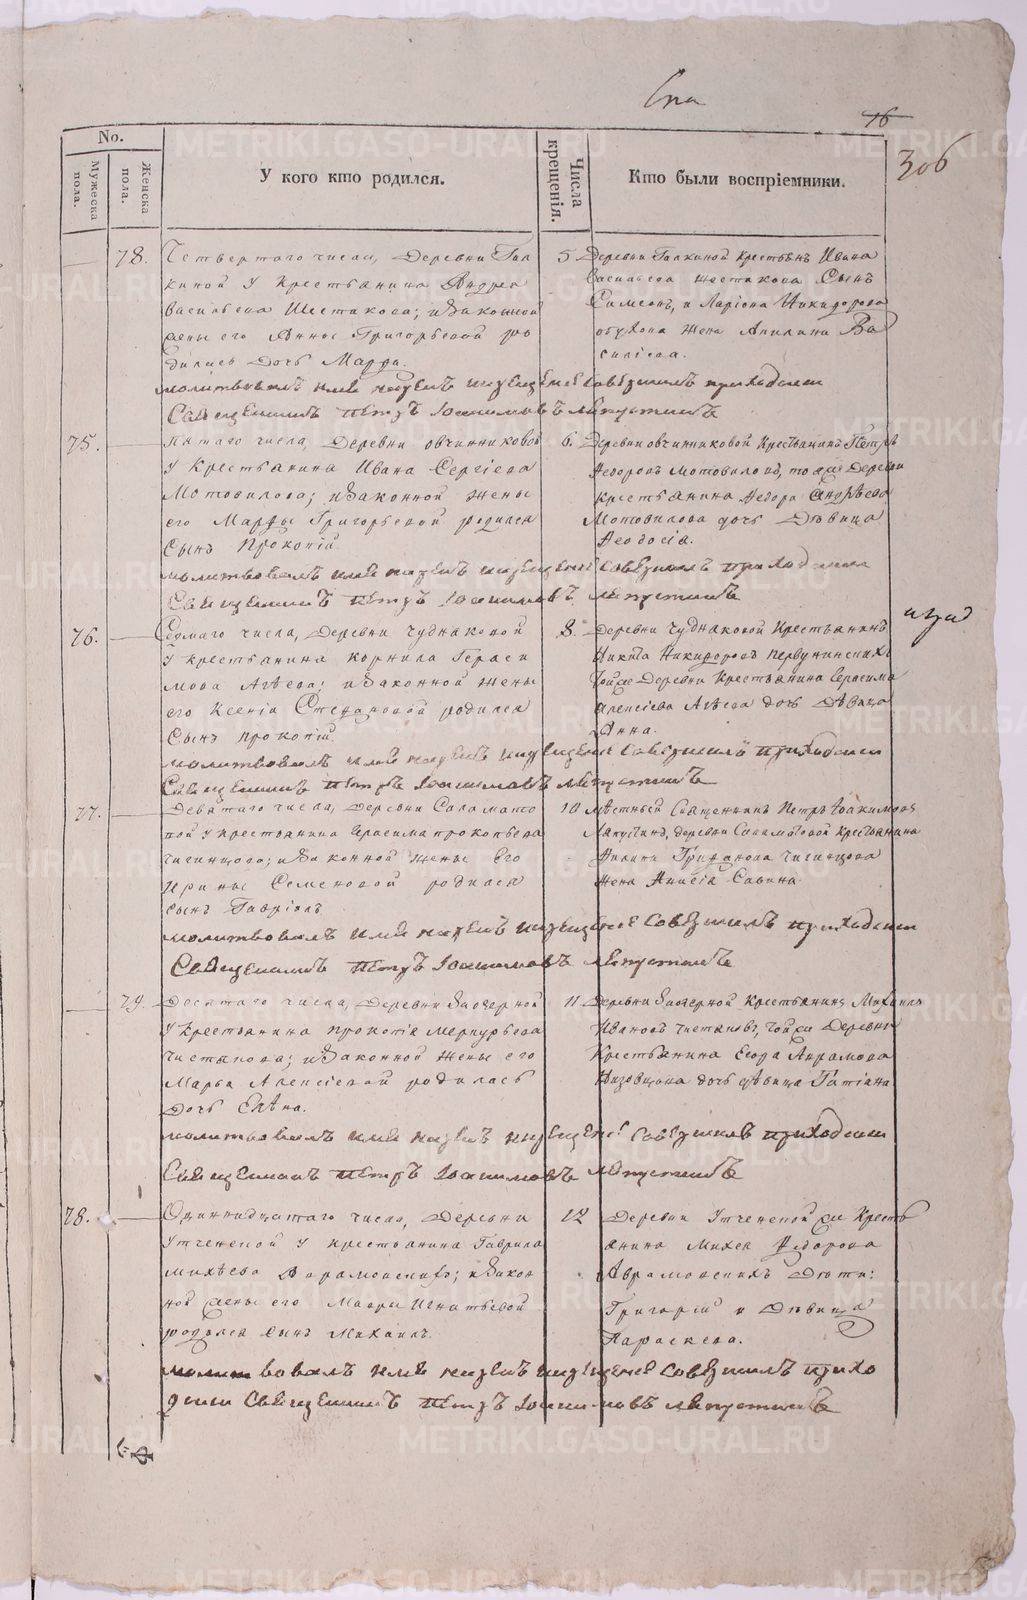 16
306
No.
Мужеска пола.
Женска пола.
У кого кто родился.
Числа крещенія.
Кто были воспріемники.
78. Четвертаго числа, Деревни Гал
киной у крестьянина Андрея
Васильева Шестакова; и законной
жены его Анны Григорьевой ро
дилась Дочь Марфа.
5 Деревни Галкиной крестьянъ Ивана
Васильева Шестакова Сынъ
Симеонъ, и Ларіона Никифорова
жена Апилина Ва
силіева.
молитвовалъ имя нарекъ и крещеніе совершилъ приходскии
Священникъ Петръ Іоакимовъ Лапустинъ
75. Пятаго числа, Деревни Овчинниковой
у крестьянина Ивана Сергіева
Мотовилова; и законной жены
его Марфы Григорьевой родился
Сынъ Прокопій.
6. Деревни Овчинниковой Крестьянинъ Петръ
Федоровъ Мотовиловъ, тоя же Деревни
крестьянина Федора Андрѣева
Мотовилова дочь Дѣвица
Феодосія.
молитвовалъ имя нарекъ и крещеніе совершилъ приходскии
Священникъ Петръ Іоакимовъ Лапустинъ
76. Седмаго числа, Деревни Чуднаковой
у крестьянина Корнила Гераси
мова Агѣева; и законной жены
его Ксеніи Стефановой родился
Сынъ Прокопій.
8. Деревни Чуднаковой Крестьянинъ
Никита Никифоровъ Первунинскихъ
тойже Деревни Крестьянина Герасима
Алексіева Агѣева дочь Дѣвица
Анна.
молитвовалъ имя нарекъ и крещеніе совершилъ приходскии
Священникъ Петръ Іоакимовъ Лапустинъ
77. Девятаго числа, Деревни Саламато
вой у крестьянина Герасима Прокопьева
Чигинцова; и законной жены Его
Ирины Семеновой родился
сынъ Гавріилъ
10 мѣстный Священникъ Петръ Іоакимовъ
Лапустинъ, деревни Саламатовой Крестьянина
Филипа Трифанова Чигинцова
жена Анисія Савина.
молитвовалъ имя нарекъ и крещеніе совершилъ приходскии
Священникъ Петръ Іоакимовъ Лапустинъ
79. Десятаго числа, Деревни Биозерной
у Крестьянина Прокопія Меркурьева
Чистякова; и законной жены его
Марьи Алексіевой родилась
Дочь Елѣна.
11 Деревни Биозерной Крестьянинъ Михаилъ
Ивановъ Чистяковъ, тойже Деревни
Крестьянина Егора Аврамова
Низовцова дочь дѣвица Татіана.
молитвовалъ имя нарекъ и крещеніе совершилъ приходскии
Священникъ Петръ Іоакимовъ Лапустинъ
78. Одиннадцатаго числа, Деревни
Утченской у крестьянина Гаврила
Михѣева Аврамовскихъ; и закон
ной жены его Мавры Игнатьевой
родился сынъ Михаилъ.
12 Деревни Утченской же Кресть
янина Михея Федорова
Аврамовскихъ Дѣти:
Григорій и Дѣвица
Параскева.
молитвовалъ имя нарекъ и крещеніе совершилъ прихо
дскии Священникъ Петръ Іоакимовъ Лапустинъ